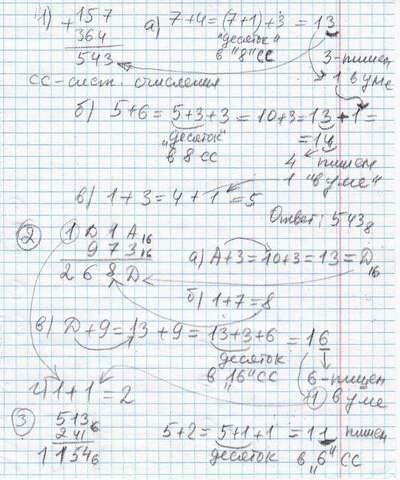 1) +157
364
543
а) 7+4=(7+1)+3 = 13
"десяток"
в "8" СС
3-пишем
1 в уме
СС-сист. счисления
б) 5+6 = 5+3+3 = 10+3=13+1=
=14
"десяток"
в 8 СС
4 пишем
1 "в уме"
в) 1+3=4+1=5
Ответ: 543₈
2 1 D 1 A₁₆
9 7 3₁₆
2 6 8 D
а) A+3=10+3=13=D₁₆
б) 1+7=8
в) D+9=13+9=13+3+6 = 16
десяток
в "16" СС
6-пишем
1 в уме
г) 1+1=2
3 513₆
241₆
1154₆
5+2=5+1+1=11 пишем
десяток в "6" СС